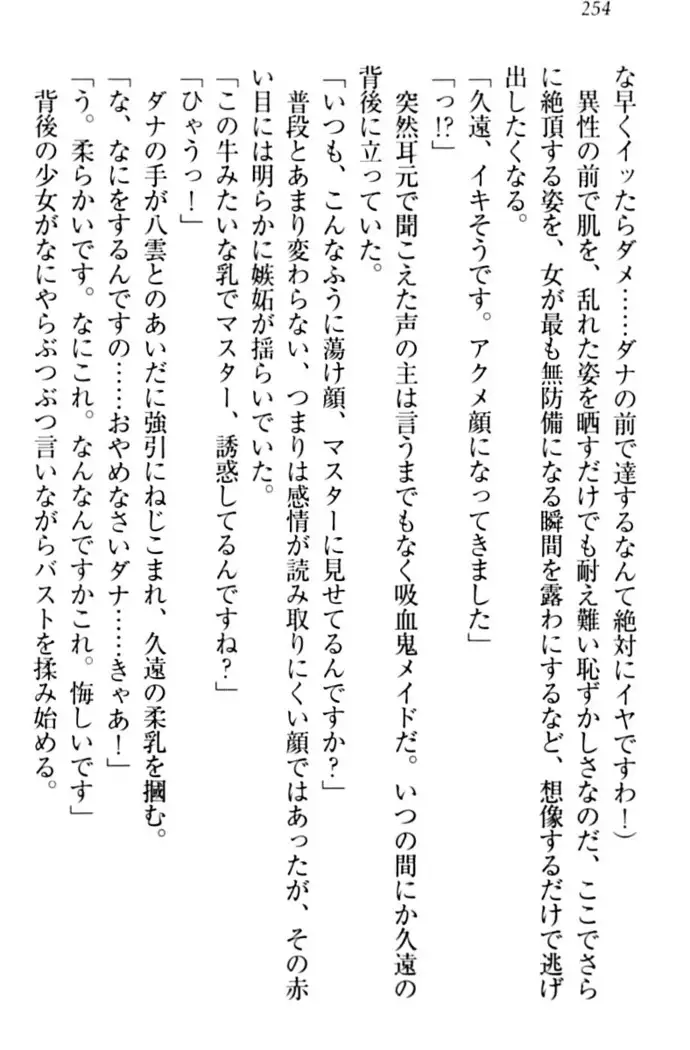 254
な早くイッたらダメ……ダナの前で達するなんて絶対にイヤですわ！）
異性の前で肌を、乱れた姿を晒すだけでも耐え難い恥ずかしさなのだ、ここでさら
に絶頂する姿を、女が最も無防備になる瞬間を露わにするなど、想像するだけで逃げ
出したくなる。
「久遠、イキそうです。アクメ顔になってきました」
「っ!?」
突然耳元で聞こえた声の主は言うまでもなく吸血鬼メイドだ。いつの間にか久遠の
背後に立っていた。
「いつも、こんなふうに蕩け顔、マスターに見せてるんですか？」
普段とあまり変わらない、つまりは感情が読み取りにくい顔ではあったが、その赤
い目には明らかに嫉妬が揺らいでいた。
「この牛みたいな乳でマスター、誘惑してるんですね？」
「ひゃうっ！」
ダナの手が八雲とのあいだに強引にねじこまれ、久遠の柔乳を摑む。
「な、なにをするんですの……おやめなさいダナ……きゃあ！」
「う。柔らかいです。なにこれ。なんなんですかこれ。悔しいです」
背後の少女がなにやらぶつぶつ言いながらバストを揉み始める。